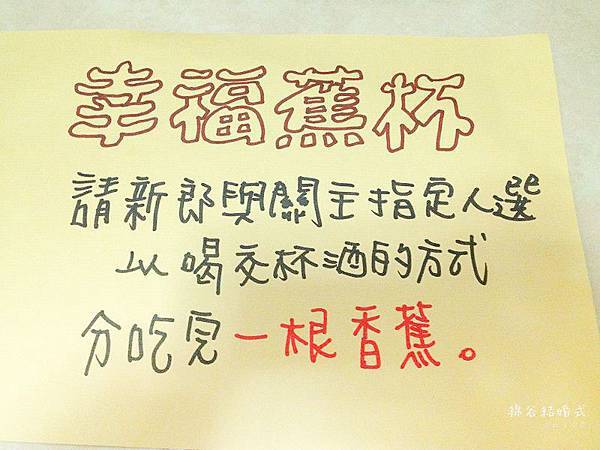 幸福蕉杯
請新郎與關主指定人選
以喝交杯酒的方式
分吃完一根香蕉。
綿谷結婚式